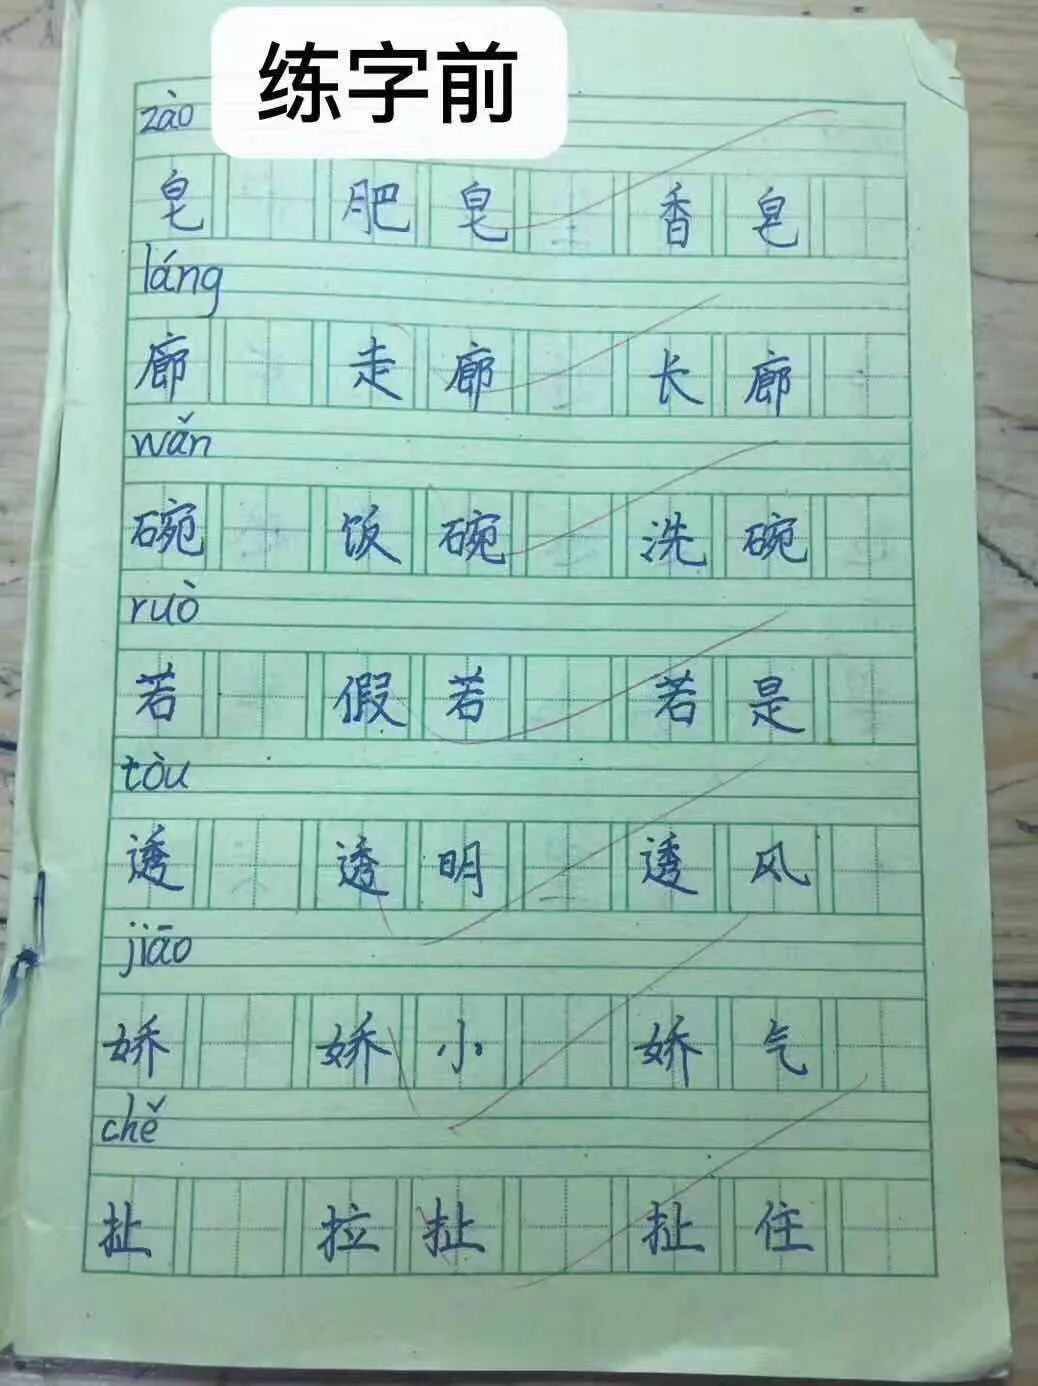 练字前
zào
皂 肥皂 香皂
láng
廊 走廊 长廊
wǎn
碗 饭碗 洗碗
ruò
若 假若 若是
tòu
透 透明 透风
jiāo
娇 娇小 娇气
chě
扯 拉扯 扯住